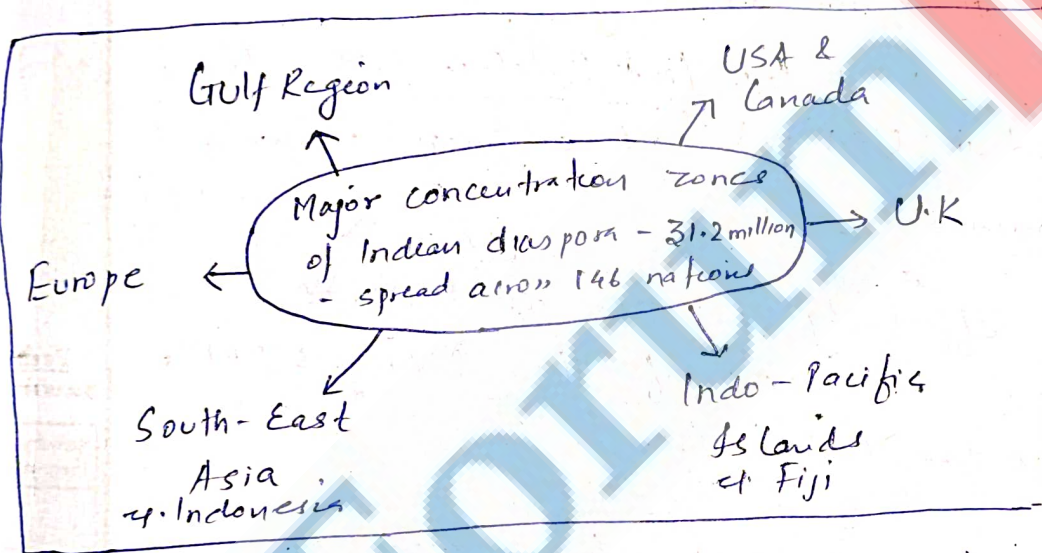 Gulf Region
USA &
Canada
Major concentration zones
of Indian diaspora - 31.2 million
- spread across 146 nations
U.K
Europe
South-East
Asia
eg. Indonesia
Indo-Pacific
Islands
eg. Fiji
Forum